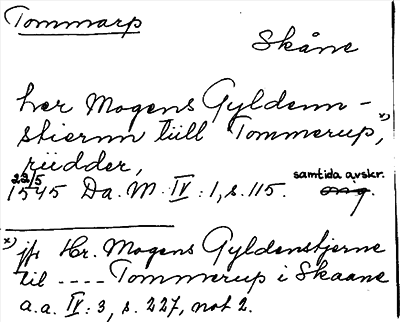 Tommarp
Skåne
her Mogens Gyldenn-
stiernn tiill Tommerup, x)
riidder,
23/5
1545 Da. M. IV: 1, s. 115. samtida avskr.
orig.
x) jfr Hr. Mogens Gyldenstjerne
til ---- Tommerup i Skaane
a.a. IV: 3, s. 227, not 2.